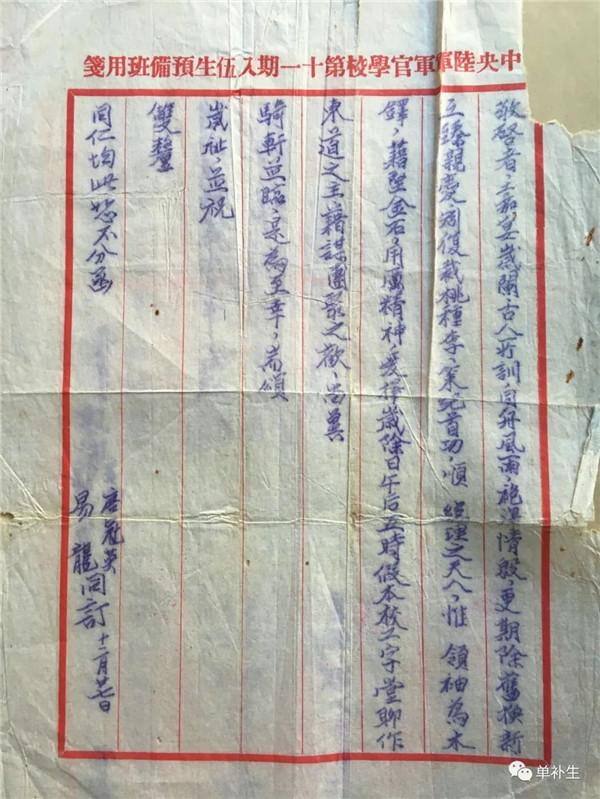 中央陸軍軍官學校第十一期入伍生預備班用箋
敬啓者嘉宴歲闌古人所訓同舟風雨袍澤情殷更期除舊換新
互臻親愛別復栽桃種李策死首功順 經理之天人惟 領袖為木
鐸藉堅金石用厲精神爰擇歲除日午后五時假本校工字堂聊作
東道之主藉謀團聚之歡尚冀
騎軒並臨是為至幸耑頌
歲祉並祝
雙釐
同仁均此恕不分函
唐冠英
易龍同訂 十二月廿七日
单补生